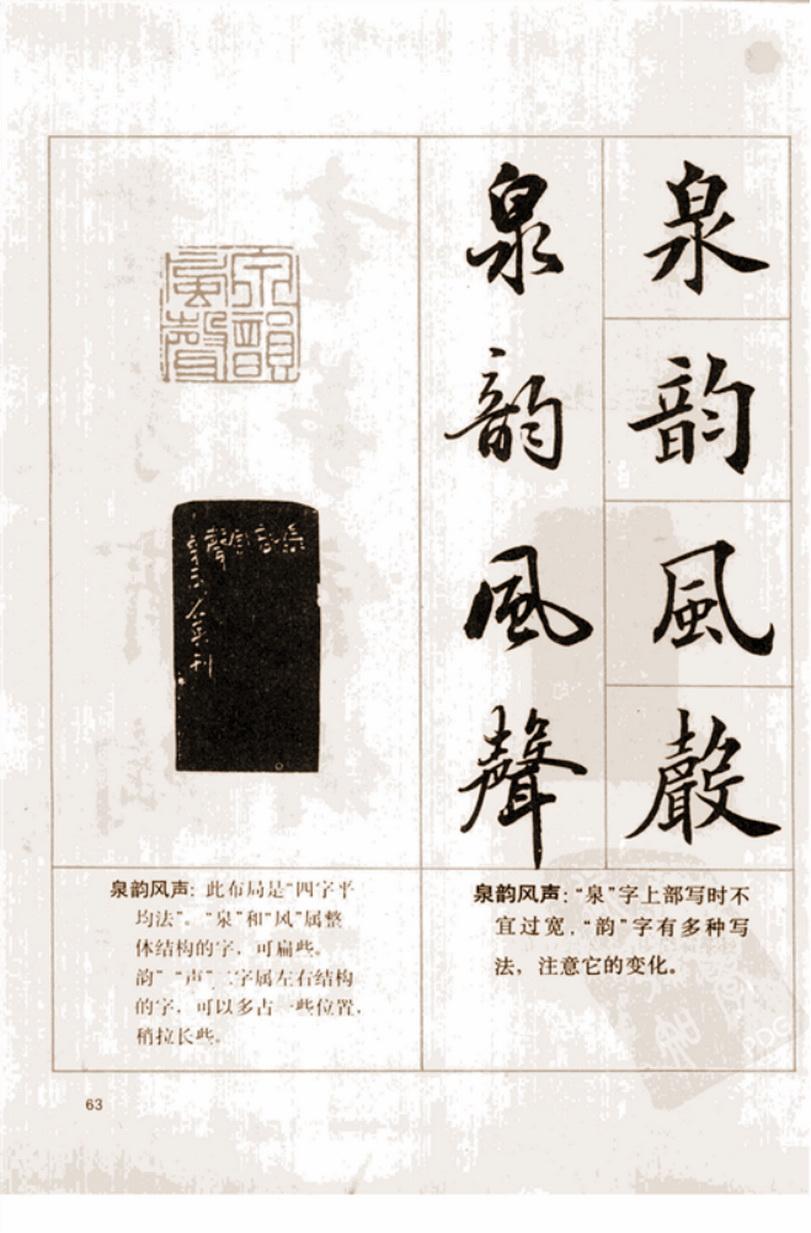 泉韵風聲
泉韵風聲
泉韻風聲
泉韵風聲
泉韵风声：此布局是“四字平
均法”。“泉”和“风”属整
体结构的字，可扁些。
韵”“声”二字属左右结构
的字，可以多占一些位置，
稍拉长些。
泉韵风声：“泉”字上部写时不
宜过宽，“韵”字有多种写
法，注意它的变化。
63
PDG